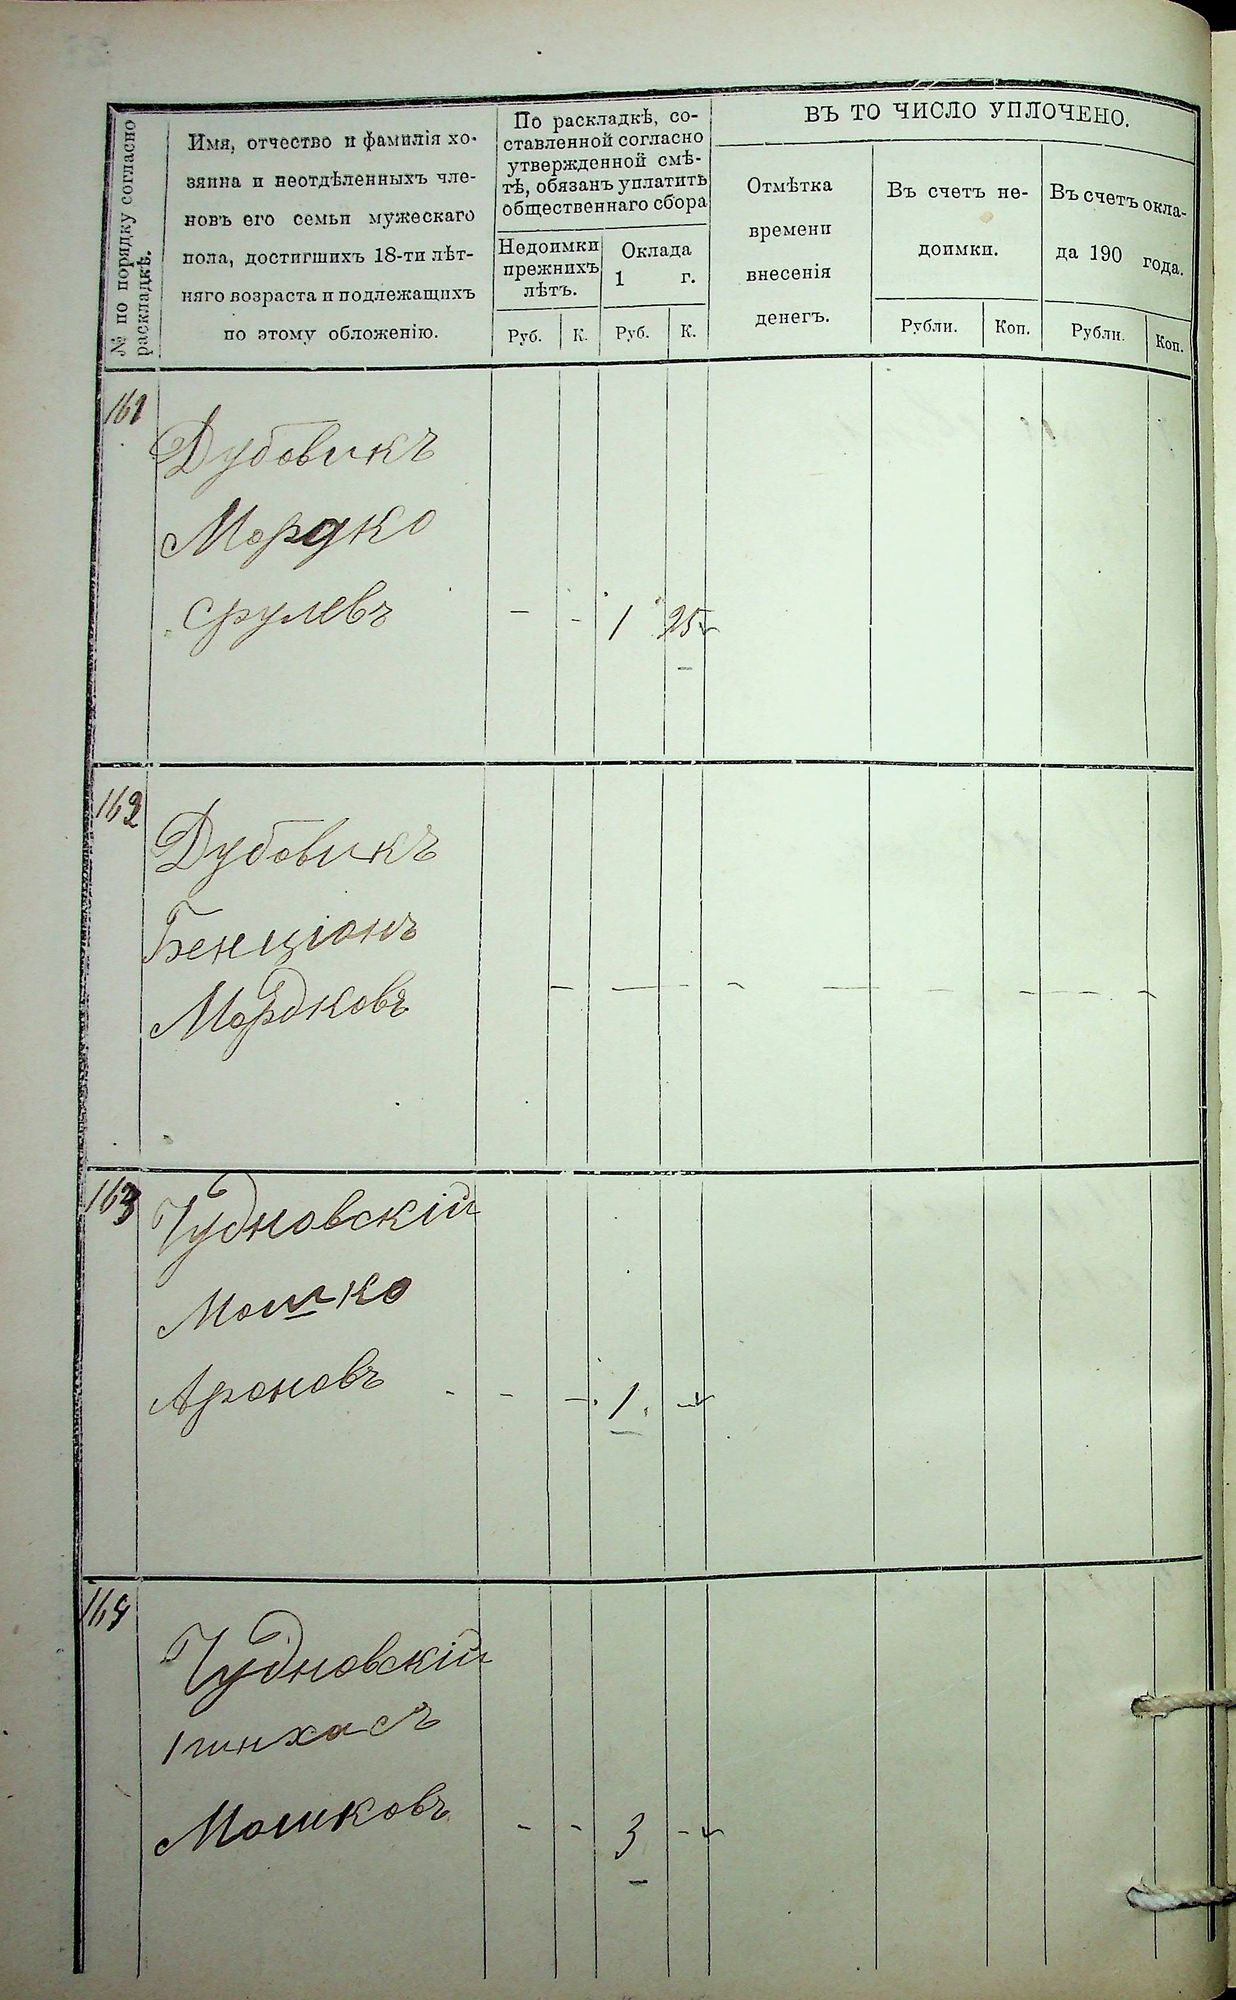 № по порядку согласно
раскладкѣ.
Имя, отчество и фамилія хо-
зяина и неотдѣленныхъ чле-
новъ его семьи мужескаго
пола, достигшихъ 18-ти лѣт-
няго возраста и подлежащихъ
по этому обложенію.
По раскладкѣ, со-
ставленной согласно
утвержденной смѣ-
тѣ, обязанъ уплатить
общественнаго сбора
Недоимки
прежнихъ
лѣтъ.
Оклада
1 г.
Руб. К. Руб. К.
ВЪ ТО ЧИСЛО УПЛОЧЕНО.
Отмѣтка
времени
внесенія
денегъ.
Въ счетъ не-
доимки.
Рубли. Коп.
Въ счетъ окла-
да 190 года.
Рубли. Коп.
161
Дубовикъ
Мордко
Срулевъ - - 1 25
162
Дубовикъ
Бенціонъ
Мордковъ
163
Чудновскій
Мошко
Ароновъ - - - 1 -
164
Чудновскій
Пинхасъ
Мошковъ - - 3 -